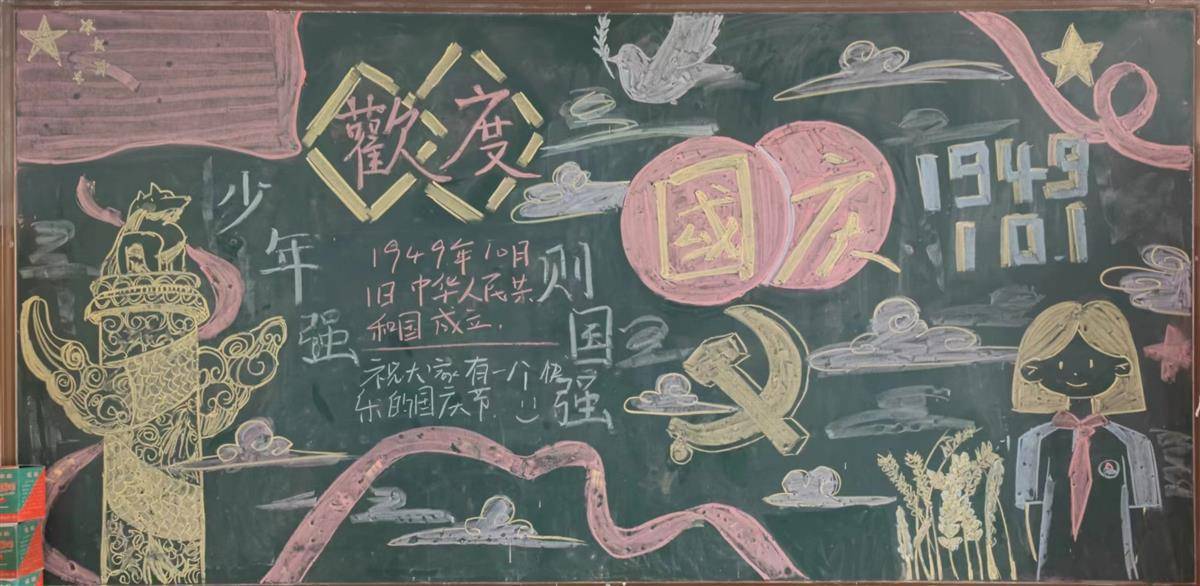 歡度
國庆
1949
10.1
少年强
则国强
1949年10月
1日中华人民共
和国成立.
祝大家有一个快
乐的国庆节. !!